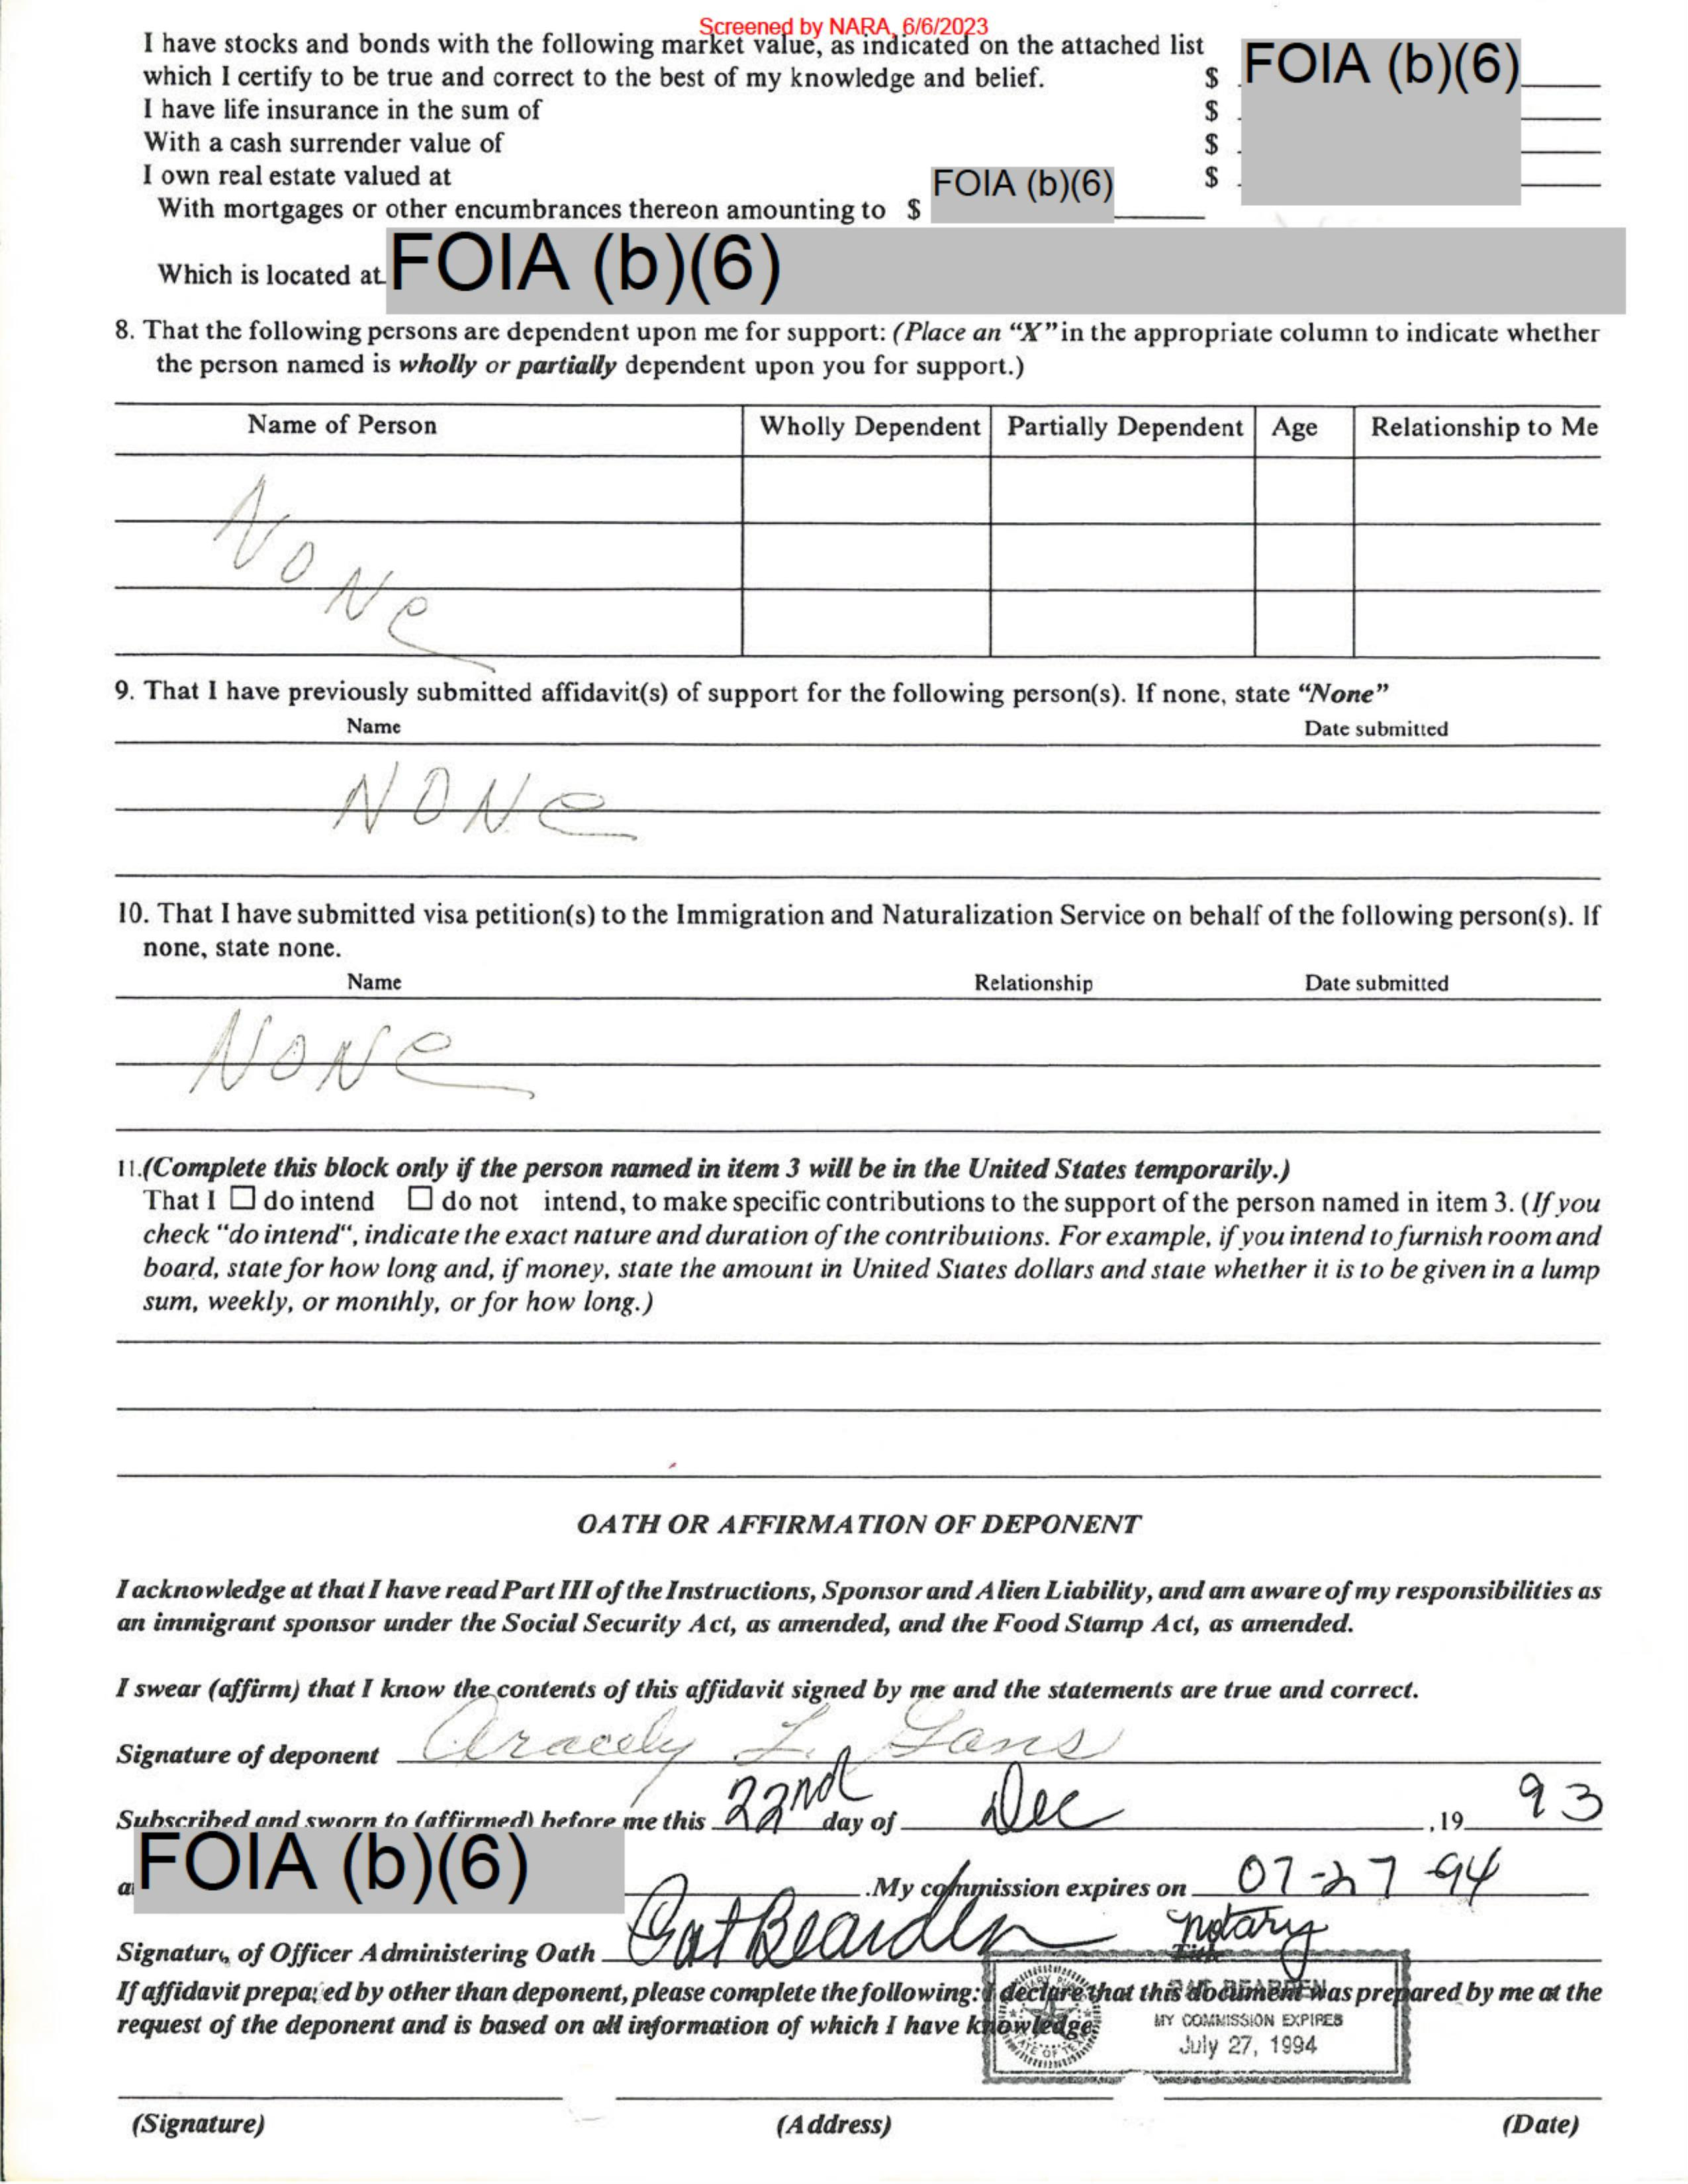 Screened by NARA, 6/6/2023
I have stocks and bonds with the following market value, as indicated on the attached list
which I certify to be true and correct to the best of my knowledge and belief. $ FOIA (b)(6)
I have life insurance in the sum of $
With a cash surrender value of $
I own real estate valued at $
With mortgages or other encumbrances thereon amounting to $ FOIA (b)(6)
Which is located at FOIA (b)(6)
8. That the following persons are dependent upon me for support: (Place an “X” in the appropriate column to indicate whether
the person named is wholly or partially dependent upon you for support.)
Name of Person Wholly Dependent Partially Dependent Age Relationship to Me
NONe
9. That I have previously submitted affidavit(s) of support for the following person(s). If none, state “None”
Name Date submitted
NONe
10. That I have submitted visa petition(s) to the Immigration and Naturalization Service on behalf of the following person(s). If
none, state none.
Name Relationship Date submitted
NONe
11.(Complete this block only if the person named in item 3 will be in the United States temporarily.)
That I ☐ do intend ☐ do not intend, to make specific contributions to the support of the person named in item 3. (If you
check “do intend“, indicate the exact nature and duration of the contributions. For example, if you intend to furnish room and
board, state for how long and, if money, state the amount in United States dollars and state whether it is to be given in a lump
sum, weekly, or monthly, or for how long.)
OATH OR AFFIRMATION OF DEPONENT
I acknowledge at that I have read Part III of the Instructions, Sponsor and Alien Liability, and am aware of my responsibilities as
an immigrant sponsor under the Social Security Act, as amended, and the Food Stamp Act, as amended.
I swear (affirm) that I know the contents of this affidavit signed by me and the statements are true and correct.
Signature of deponent Aracely L. Gans
Subscribed and sworn to (affirmed) before me this 22nd day of Dec ,19 93
FOIA (b)(6) .My commission expires on 07-27-94
Signature of Officer Administering Oath Pat Bearden notary
Title
If affidavit prepared by other than deponent, please complete the following: I declare that this document was prepared by me at the
request of the deponent and is based on all information of which I have knowledge.
PAT BEARDEN
MY COMMISSION EXPIRES
July 27, 1994
(Signature) (Address) (Date)